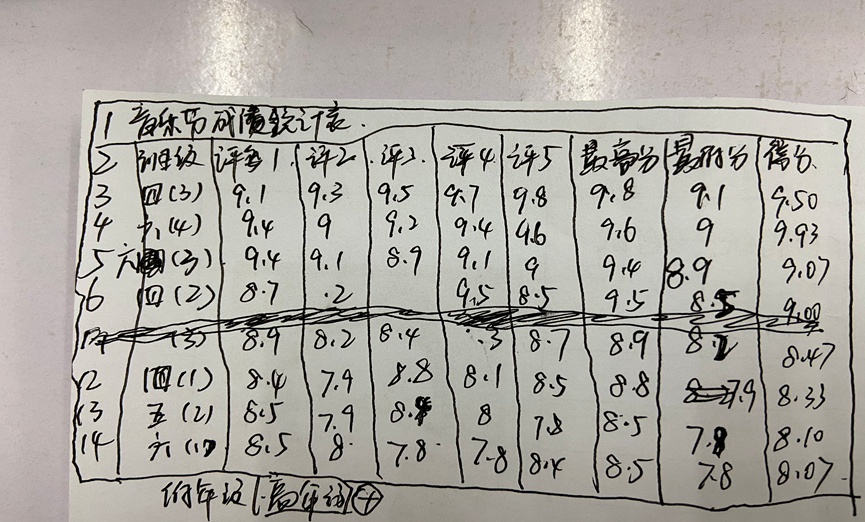 1 音乐节成绩统计表.
2 班年级 评委1. 评2 评3 评4 评5 最高分 最低分 得分.
3 四(3) 9.1 9.3 9.5 9.7 9.8 9.8 9.1 9.50
4 六(4) 9.4 9 9.2 9.4 9.6 9.6 9 9.93
5 六(3) 9.4 9.1 8.9 9.1 9 9.4 8.9 9.07
6 四(2) 8.7 .2 9.5 8.5 9.5 8.5 9.00
(3) 8.9 8.2 8.4 .3 8.7 8.9 8.2 8.47
12 四(1) 8.4 7.9 8.8 8.1 8.5 8.8 7.9 8.33
13 五(2) 8.5 7.9 8 7.8 8.5 7.8 8.10
14 六(1) 8.5 8 7.8 7.8 8.4 8.5 7.8 8.07.
年级 高年级